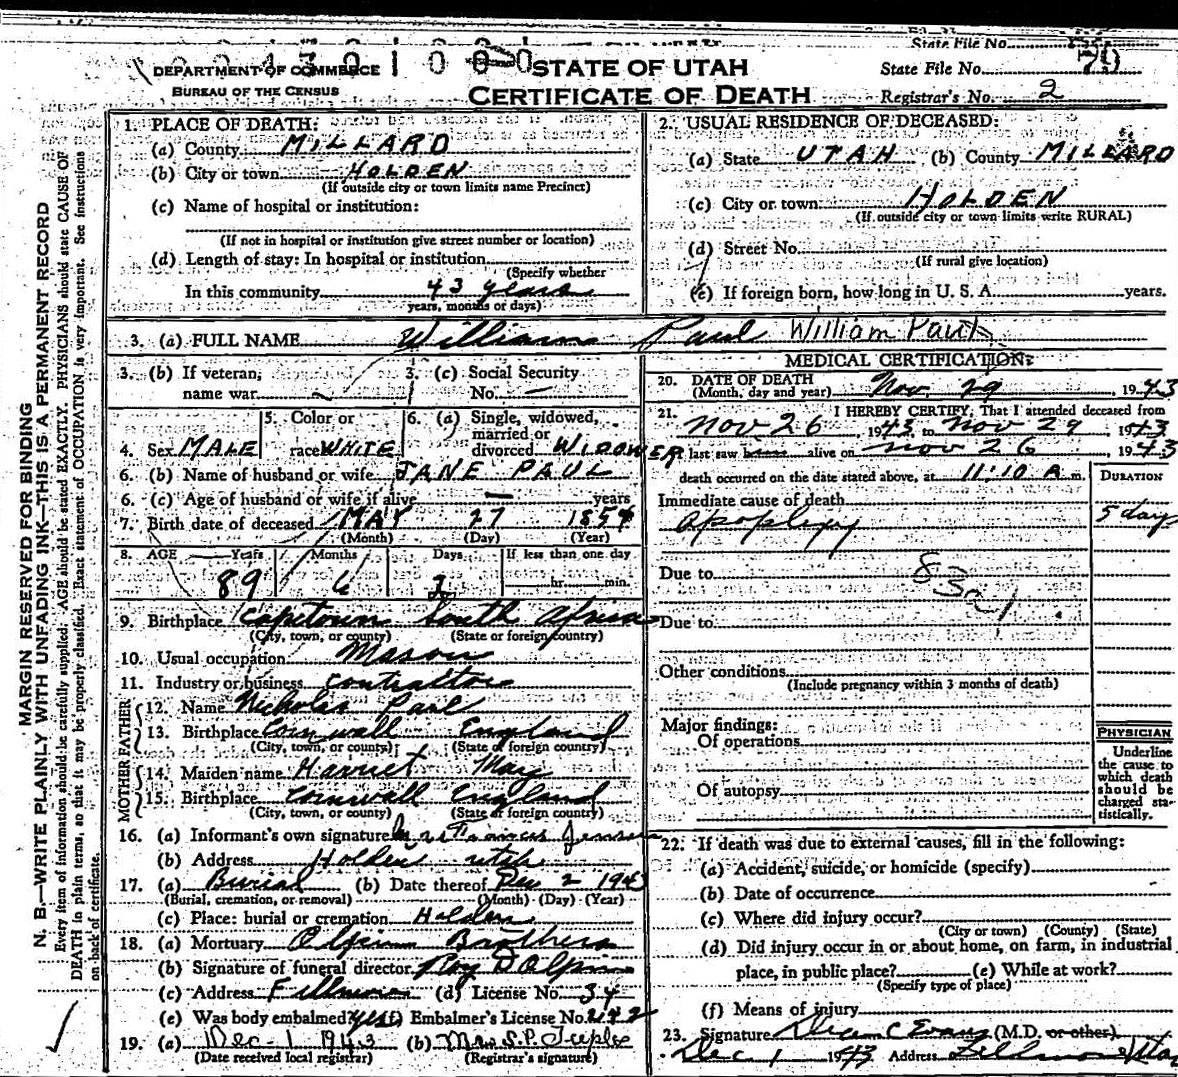 State File No.
DEPARTMENT OF COMMERCE
BUREAU OF THE CENSUS
STATE OF UTAH
CERTIFICATE OF DEATH
State File No. 79
Registrar's No. 2
MARGIN RESERVED FOR BINDING
N. B.—WRITE PLAINLY WITH UNFADING INK—THIS IS A PERMANENT RECORD
Every item of information should be carefully supplied. AGE should be stated EXACTLY. PHYSICIANS should state CAUSE OF
DEATH in plain terms, so that it may be properly classified. Exact statement of OCCUPATION is very important. See instructions
on back of certificate.
1. PLACE OF DEATH:
(a) County MILLARD
(b) City or town HOLDEN
(If outside city or town limits name Precinct)
(c) Name of hospital or institution:
(If not in hospital or institution give street number or location)
(d) Length of stay: In hospital or institution
(Specify whether
In this community 43 years
years, months or days)
2. USUAL RESIDENCE OF DECEASED:
(a) State UTAH (b) County MILLARD
(c) City or town HOLDEN
(If outside city or town limits write RURAL)
(d) Street No.
(If rural give location)
(e) If foreign born, how long in U. S. A. years.
3. (a) FULL NAME William Paul William Paul
3. (b) If veteran, name war
3. (c) Social Security No. —
4. Sex MALE
5. Color or race WHITE
6. (a) Single, widowed, married or divorced WIDOWER
6. (b) Name of husband or wife JANE PAUL
6. (c) Age of husband or wife if alive — years
7. Birth date of deceased MAY 27 1854
(Month) (Day) (Year)
8. AGE Years Months Days If less than one day
89 6 2 hr. min.
9. Birthplace Capetown South Africa
(City, town, or county) (State or foreign country)
10. Usual occupation Mason
11. Industry or business Contractor
FATHER
12. Name Nicholas Paul
13. Birthplace Cornwall England
(City, town, or county) (State or foreign country)
MOTHER
14. Maiden name Harriet May
15. Birthplace Cornwall England
(City, town, or county) (State or foreign country)
16. (a) Informant's own signature Mrs Frances Jensen
(b) Address Holden Utah
17. (a) Burial (b) Date thereof Dec 2 1943
(Burial, cremation, or removal) (Month) (Day) (Year)
(c) Place: burial or cremation Holden
18. (a) Mortuary Olpin Brothers
(b) Signature of funeral director Roy D Olpin
(c) Address Fillmore (d) License No. 34
(e) Was body embalmed? Yes (f) Embalmer's License No. 242
19. (a) Dec-1 1943 (b) Mrs S.P. Teeples
(Date received local registrar) (Registrar's signature)
MEDICAL CERTIFICATION:
20. DATE OF DEATH Nov. 29, 1943
(Month, day and year)
21. I HEREBY CERTIFY, That I attended deceased from
Nov 26, 1943, to Nov 29, 1943
I last saw alive on Nov 26, 1943
death occurred on the date stated above, at 11:10 A m.
DURATION
Immediate cause of death
apoplexy 5 days
Due to
Due to
Other conditions
(Include pregnancy within 3 months of death)
Major findings:
Of operations
Of autopsy
PHYSICIAN
Underline
the cause to
which death
should be
charged sta-
tistically.
22. If death was due to external causes, fill in the following:
(a) Accident, suicide, or homicide (specify)
(b) Date of occurrence
(c) Where did injury occur?
(City or town) (County) (State)
(d) Did injury occur in or about home, on farm, in industrial
place, in public place? (e) While at work?
(Specify type of place)
(f) Means of injury
23. Signature Dean C Evans (M.D. or other)
Dec 1 1943 Address Fillmore Utah